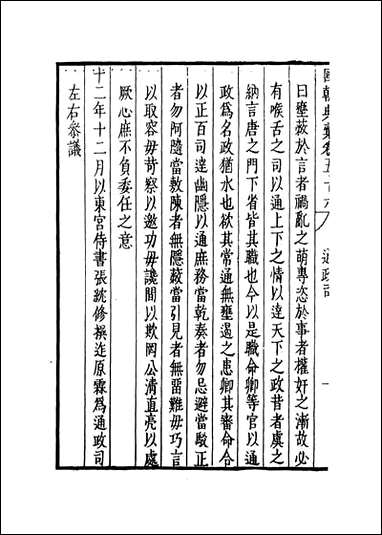 國朝典彙卷五十六 通政司 一
曰壅蔽於言者禍亂之萌專恣於事者權奸之漸故必
有喉舌之司以通上下之情以達天下之政昔者虞之
納言唐之門下省皆其職也今以是職命卿等官以通
政爲名政猶水也欲其常通無壅遏之患卿其審命令
以正百司達幽隱以通庶務當執奏者勿忌避當駁正
者勿阿隨當敷陳者無隱蔽當引見者無留難毋巧言
以取容毋苛察以邀功毋讒間以欺罔公清直亮以處
厥心庶不負委任之意
十二年十二月以東宮侍書張紞修撰迮原霖爲通政司
左右參議